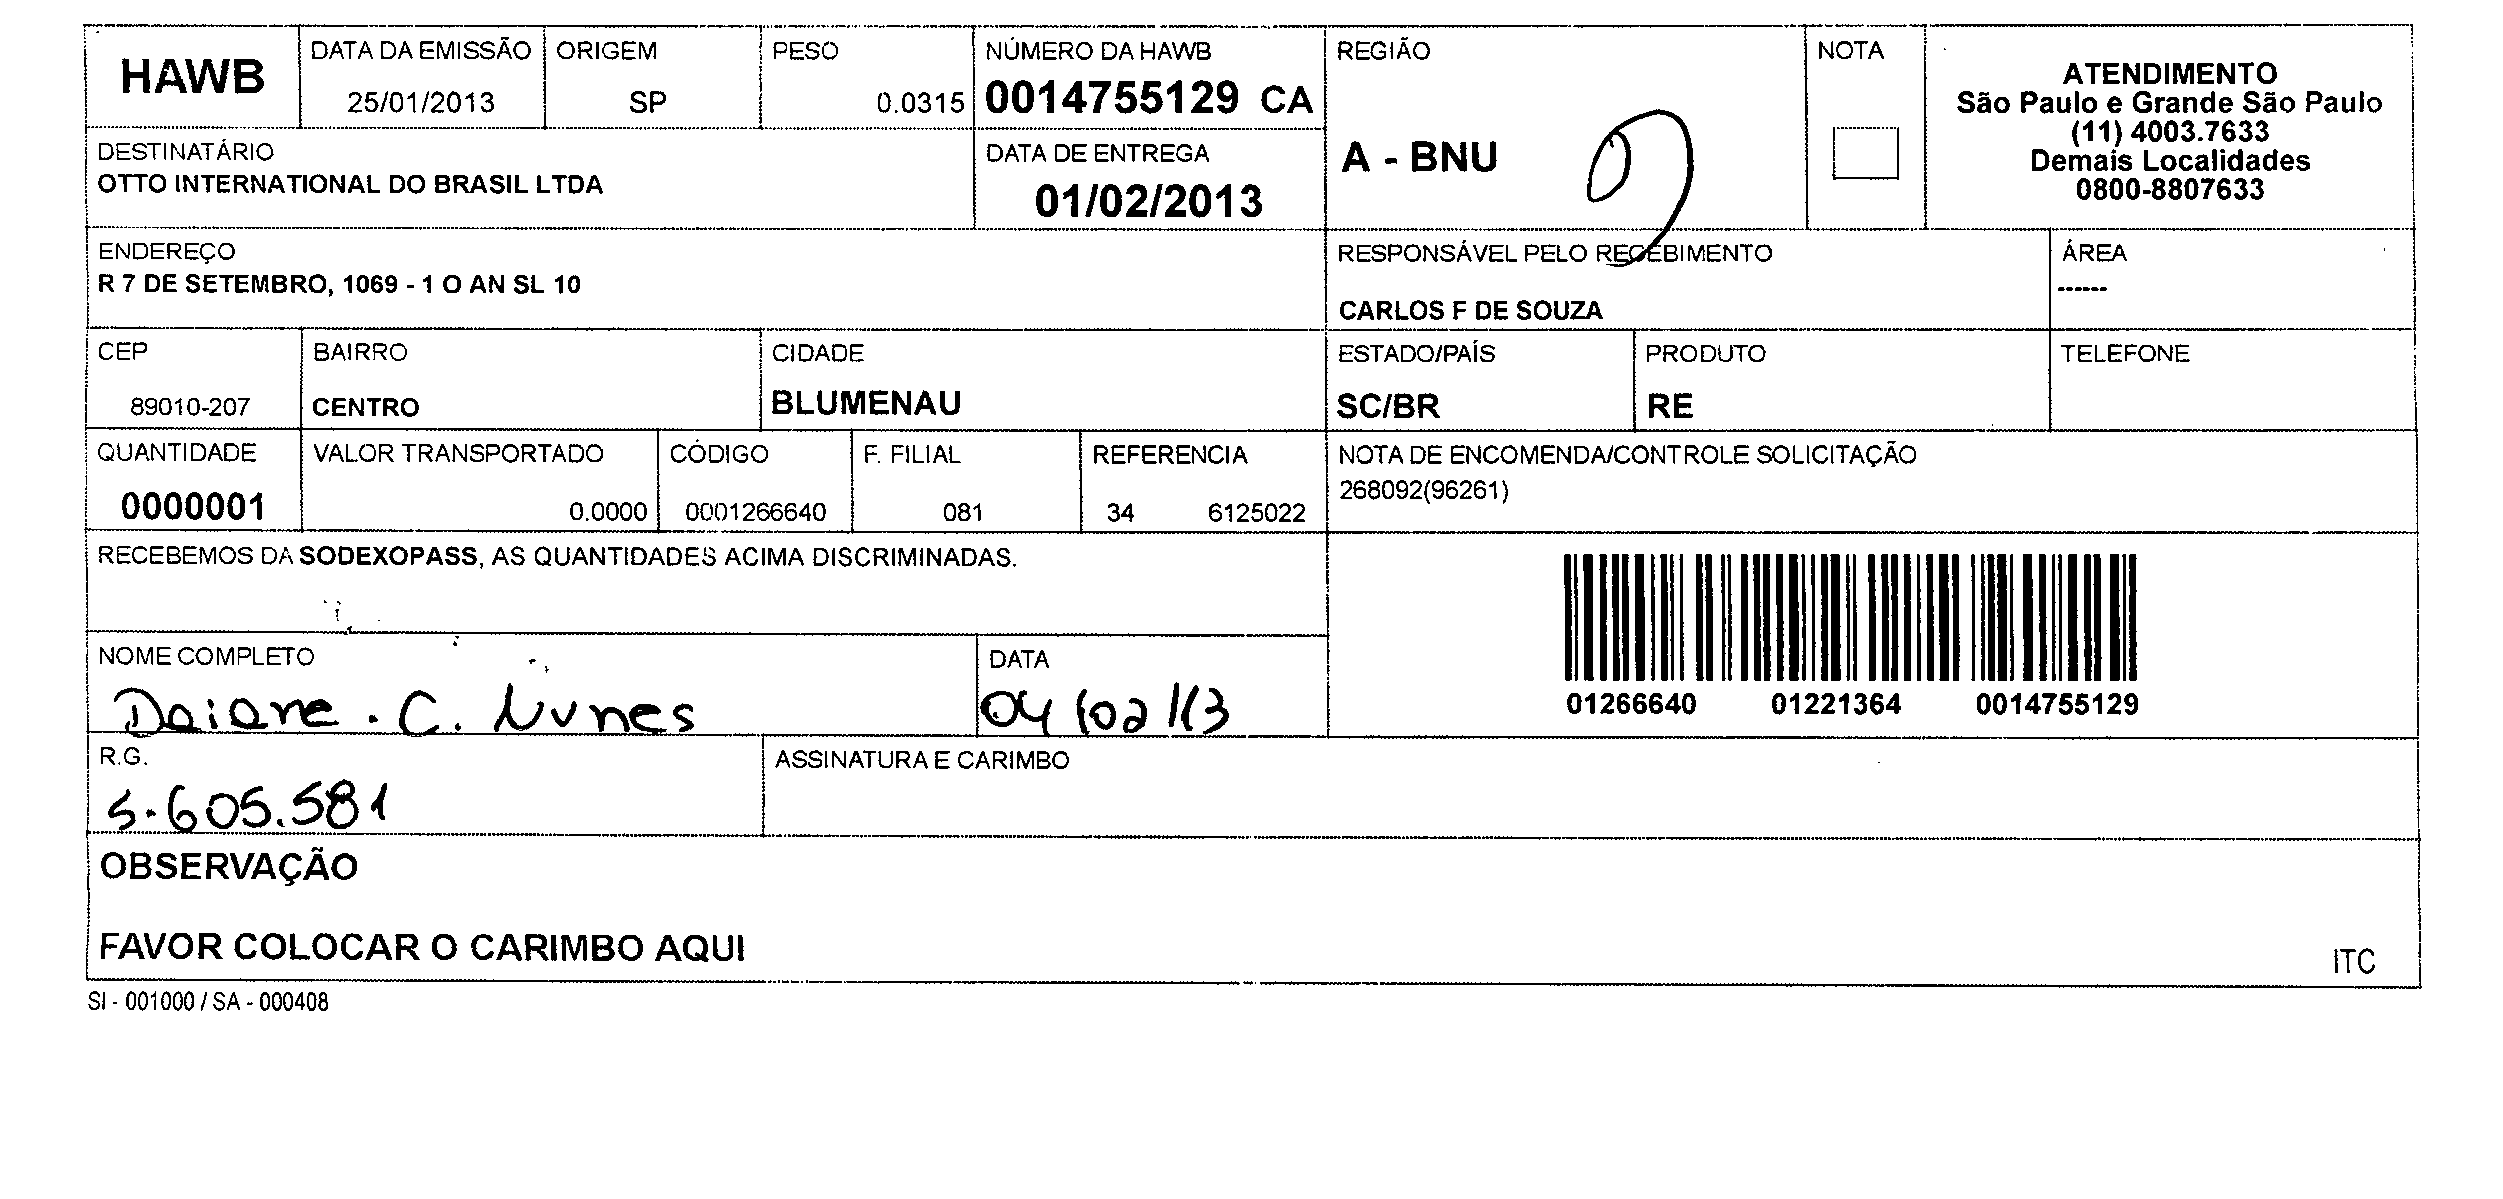 HAWB
DATA DA EMISSÃO
25/01/2013
ORIGEM
SP
PESO
0.0315
NÚMERO DA HAWB
0014755129 CA
REGIÃO
A - BNU
NOTA
ATENDIMENTO
São Paulo e Grande São Paulo
(11) 4003.7633
Demais Localidades
0800-8807633
DESTINATÁRIO
OTTO INTERNATIONAL DO BRASIL LTDA
DATA DE ENTREGA
01/02/2013
ENDEREÇO
R 7 DE SETEMBRO, 1069 - 1 O AN SL 10
RESPONSÁVEL PELO RECEBIMENTO
CARLOS F DE SOUZA
ÁREA
------
CEP
89010-207
BAIRRO
CENTRO
CIDADE
BLUMENAU
ESTADO/PAÍS
SC/BR
PRODUTO
RE
TELEFONE
QUANTIDADE
0000001
VALOR TRANSPORTADO
0.0000
CÓDIGO
0001266640
F. FILIAL
081
REFERENCIA
34 6125022
NOTA DE ENCOMENDA/CONTROLE SOLICITAÇÃO
268092(96261)
RECEBEMOS DA SODEXOPASS, AS QUANTIDADES ACIMA DISCRIMINADAS.
01266640 01221364 0014755129
NOME COMPLETO
Daiane. C. Nunes
DATA
04/02/13
R.G.
5.605.581
ASSINATURA E CARIMBO
OBSERVAÇÃO
FAVOR COLOCAR O CARIMBO AQUI
ITC
SI - 001000 / SA - 000408